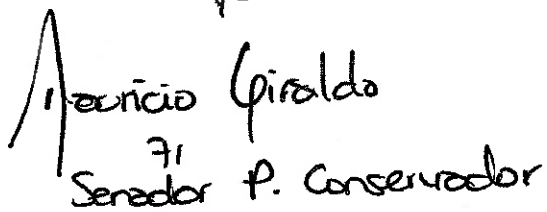 Mauricio Giraldo
71
Senador P. Conservador